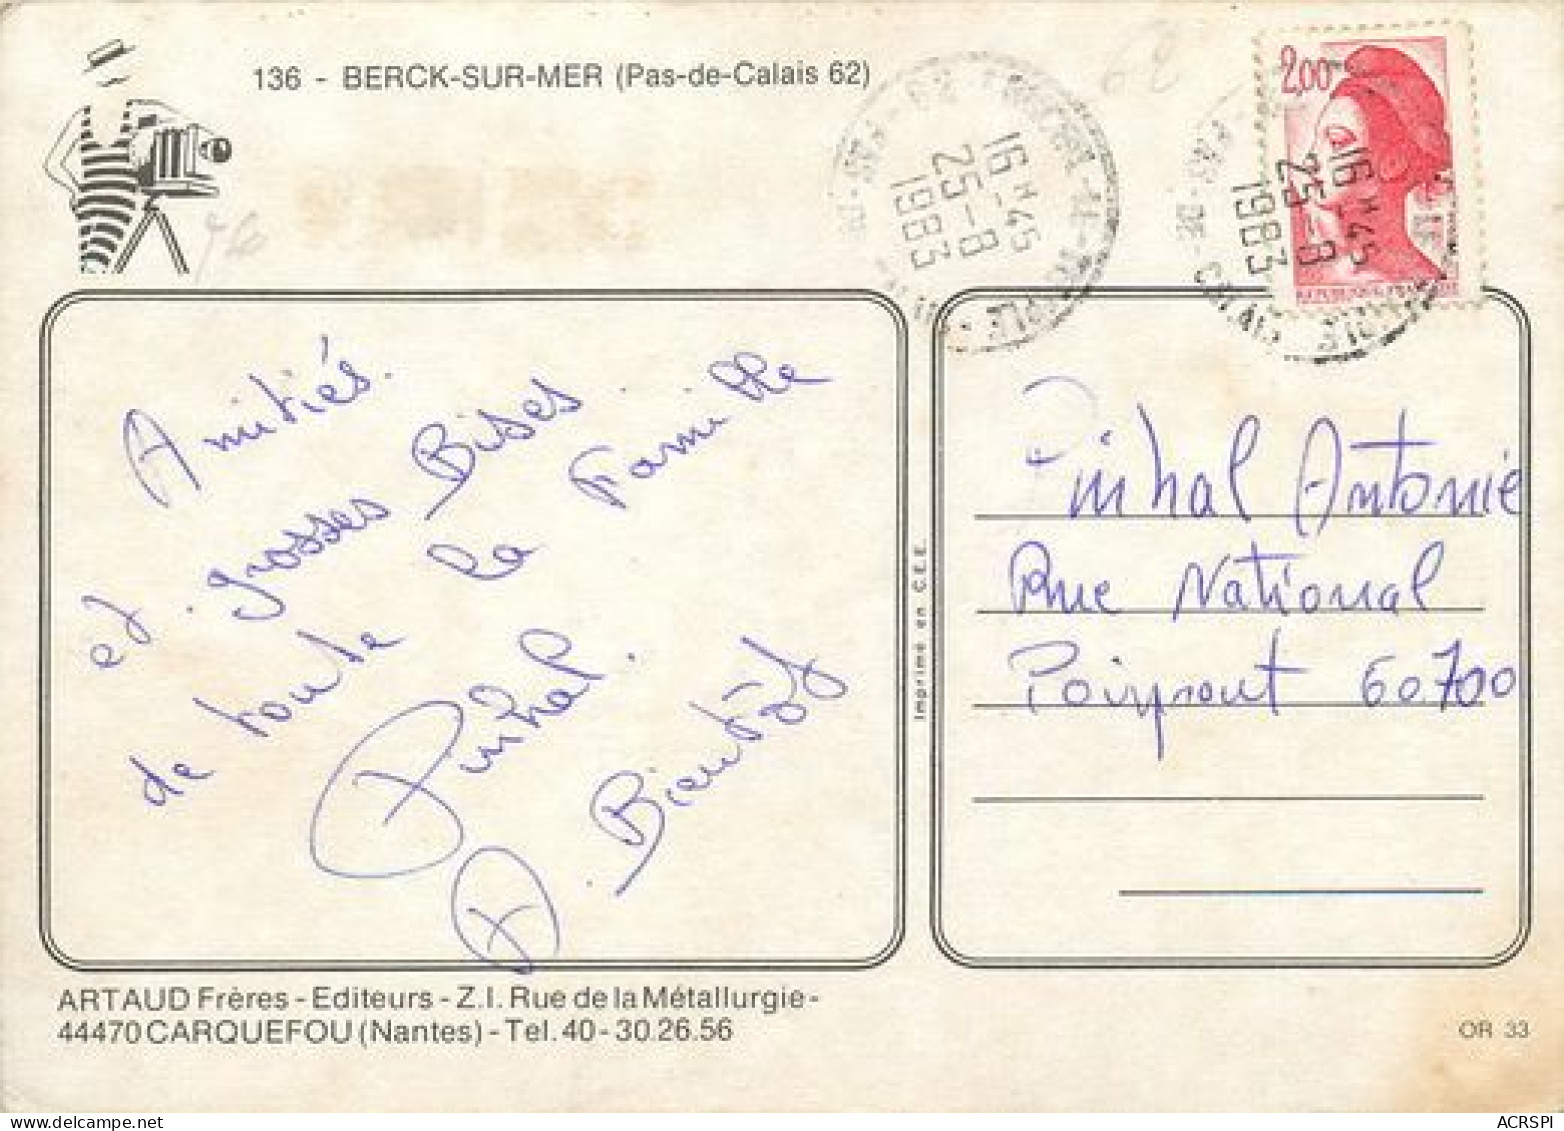 136 - BERCK-SUR-MER (Pas-de-Calais 62)
62
7€
16 H 45
25-8
1983
2,00
16 H 45
25-8
1983
REPUBLIQUE FRANÇAISE
Amitiés.
et grosses Bises.
de toute la Famille
Pinhal.
A. Bientôt
Imprimé en C.E.E.
Pinhal Antonie
Rue National
Poinpont 60.700
ARTAUD Frères - Editeurs - Z.I. Rue de la Métallurgie -
44470 CARQUEFOU (Nantes) - Tel. 40-30.26.56
OR 33
ACRSPI